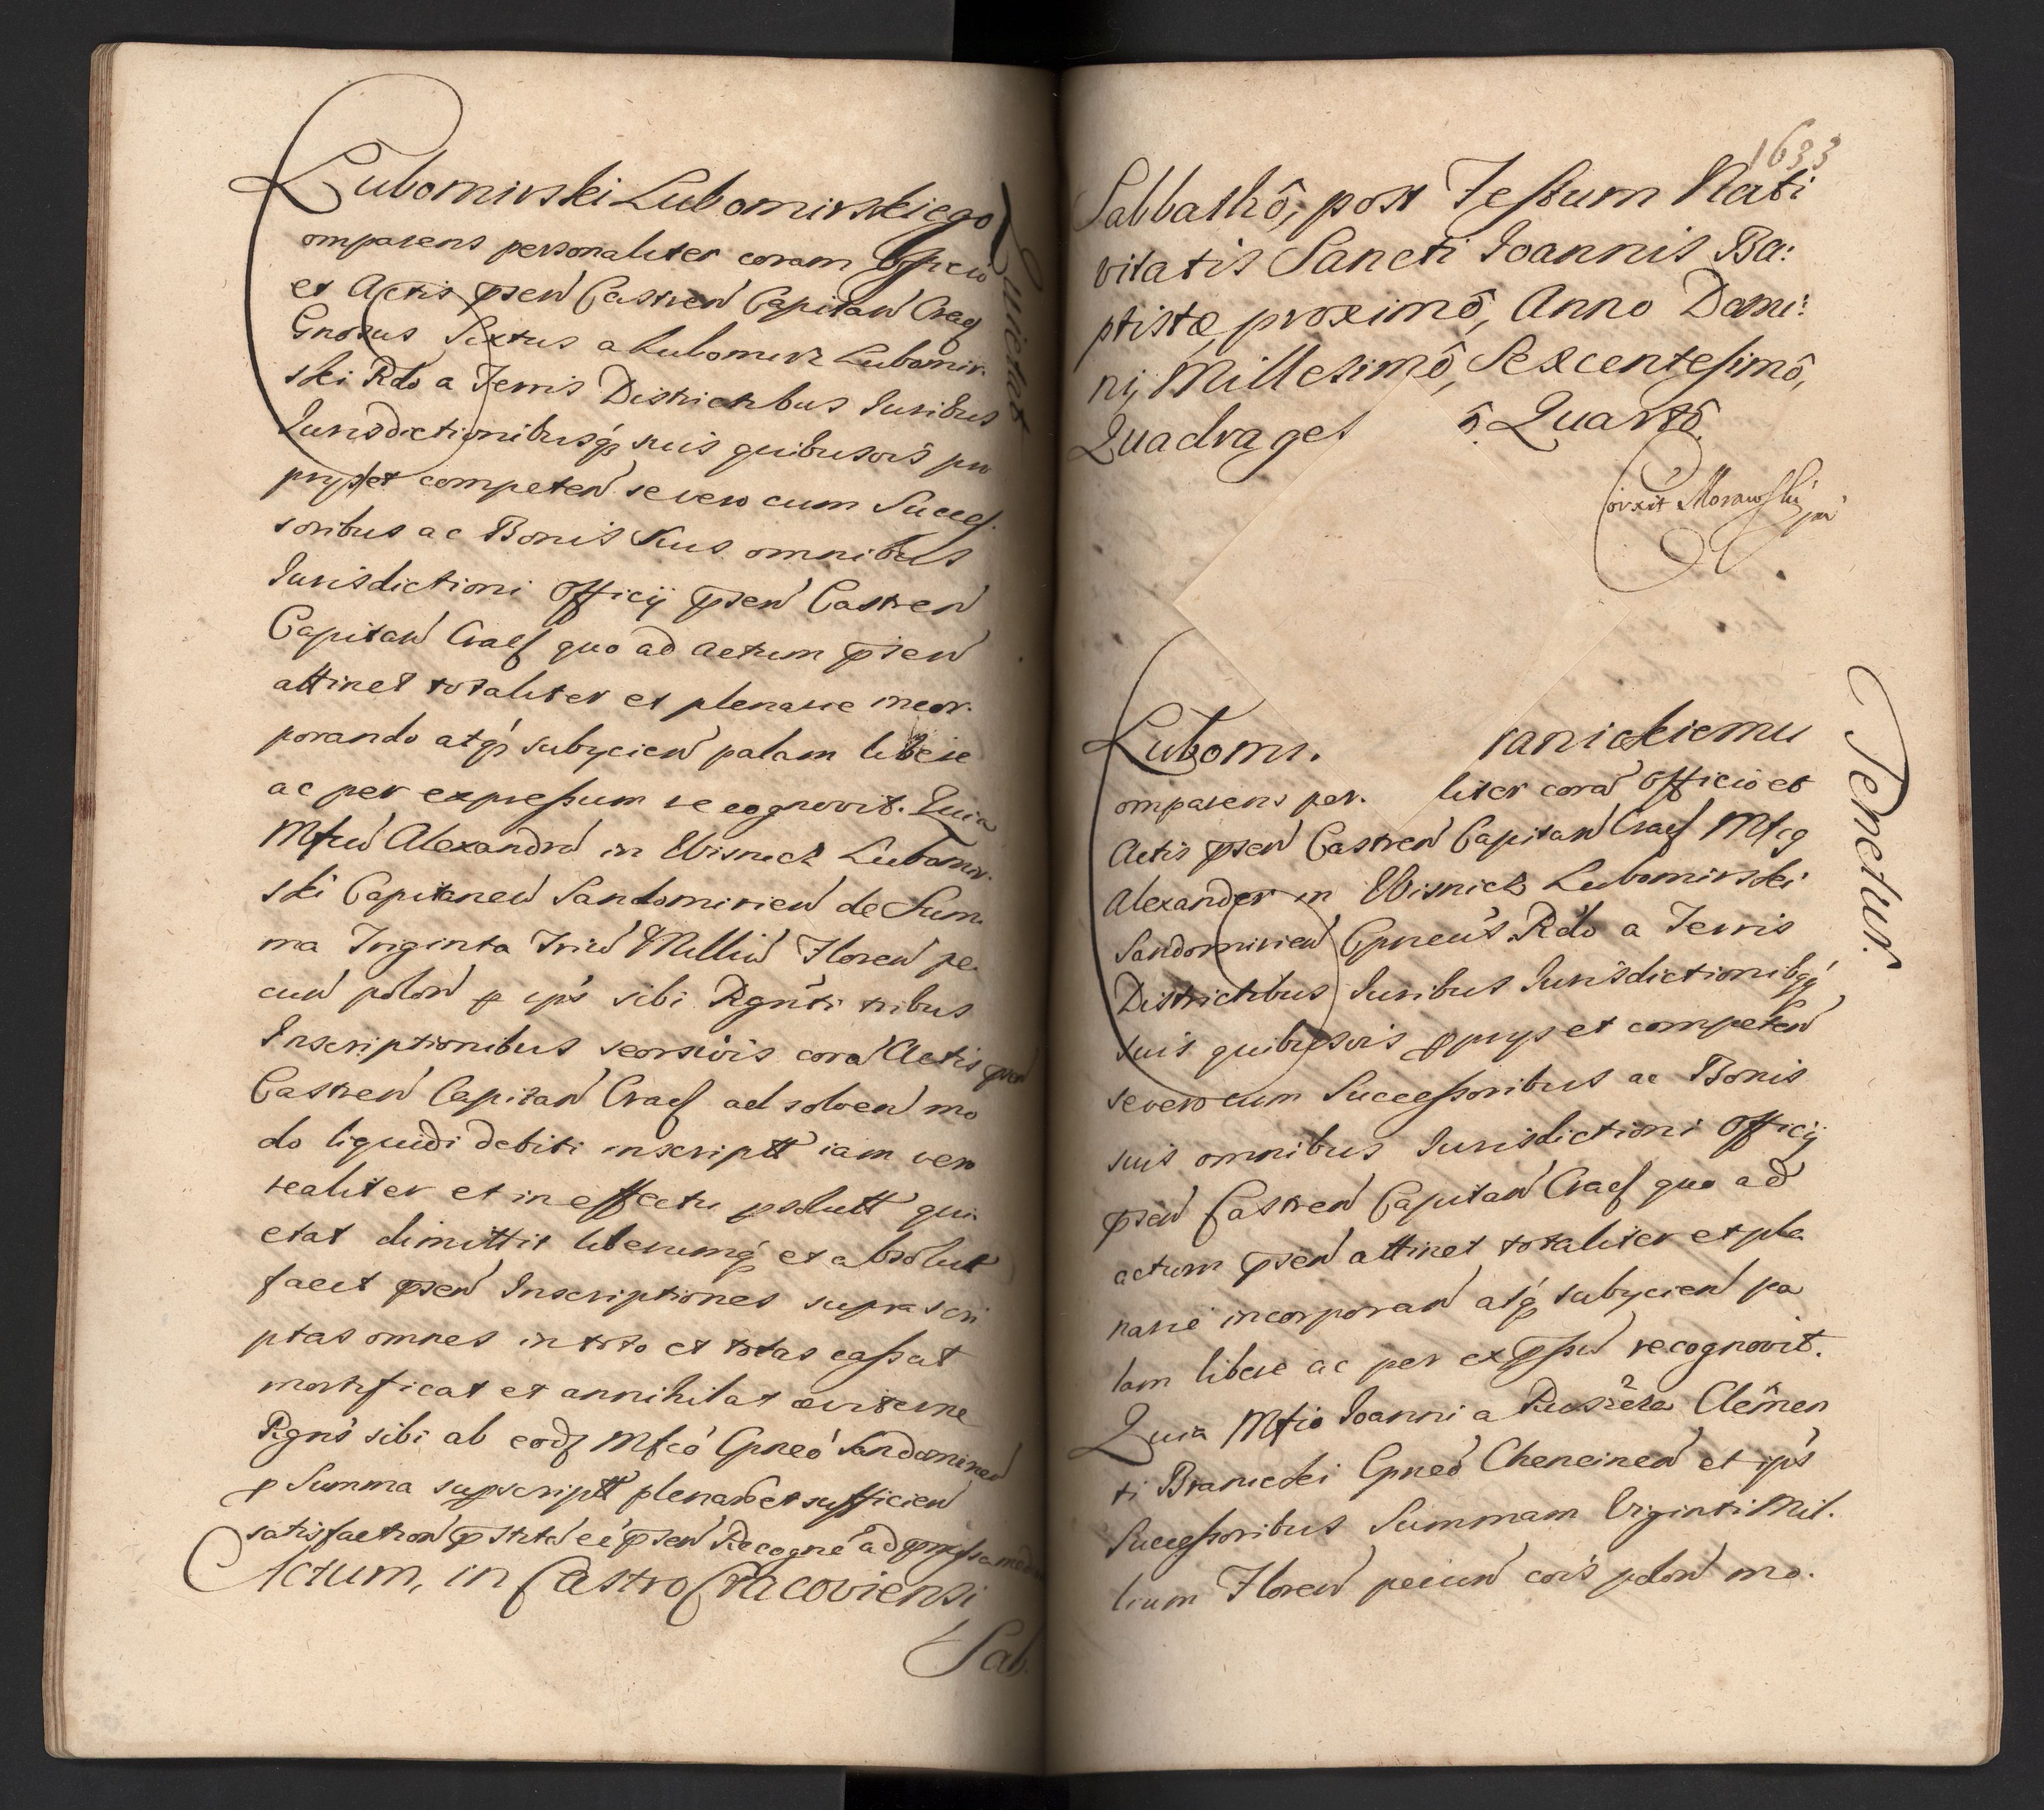 Lubomirski Lubomirskiego
Quietat
omparens personaliter coram Officio
et Actis pñsen Castren Capitan Crac
Gnosus Sixtus a Lubomirz Lubomir.
ski Rdo a Terris Districtibus Iuribus
Iurisdictionibusq suis quibusvis pro
prys et competen se vero cum Succes.
soribus ac Bonis Suis omnibus
Iurisdictioni Officij pñsen Castren
Capitan Crac quo ad actum pñsen
attinet totaliter et plenarie incor.
porando atq subycien palam libere
ac per expressum recognovit. Quia
Mfcu Alexandru in Wisnicz Lubomir.
ski Capitaneu Sandomirien de Sum.
ma Triginta Triu Milliu Floren pe
cun polon p ips sibi Rgnti tribus
Inscriptionibus seorsivis cora Actis pñsen
Castren Capitan Crac ad solven mo
do liquidi debiti inscriptt iam vero
realiter et in effectu psolutt qui.
etat dimittit liberumq et absolut
facit pñsen Inscriptiones suprascri
ptas omnes in toto et totas cassat
mortificat et annihilat æviterne
Rgns sibi ab eodz Mfco Cpneo Sandomirien
p Summa supscriptt plenar et sufficien
satisfaction p stita ee pñsen Recogne ad pmissa med
Actum, in Castro Cracoviensi
Sab.
1633
Sabbathô, post Festum Nati
vitatis Sancti Ioannis Ba:
ptistæ proximô, Anno Domi:
ni, Millesimô, Sexcentesimô,
Quadraget ô. Quartô.
Corxit Morawski
Lubomi. ranickiemu
Tenetur.
omparens per. liter cora Officio et
Actis pñsen Castren Capitan Crac Mfcg
Alexander in Wisnicz Lubomirski
Sandomirien Cpneus Rdo a Terris
Districtibus Iuribus Iurisdictionibgq
suis quibusvis pprys et competen
se vero cum Successoribus ac Bonis
suis omnibus Iurisdictioni Officij
pñsen Castren Capitan Crac quo ad
actum pñsen attinet totaliter et ple
narie incorporan atq subycien pa
lam libere ac per expssu recognovit.
Quia Mfio Ioanni a Ruszcza Clemen
ti Branicki Cpneo Checinen et ips
Successoribus Summam Viginti Mil.
lium Floren pecun cois polon mo.